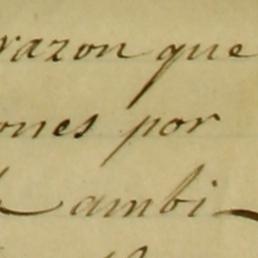 razon que
ones por
ambi